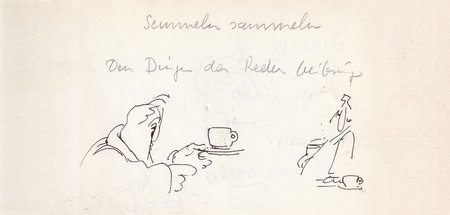 Semmeln sammeln
Den Dingen das Reden beibringen